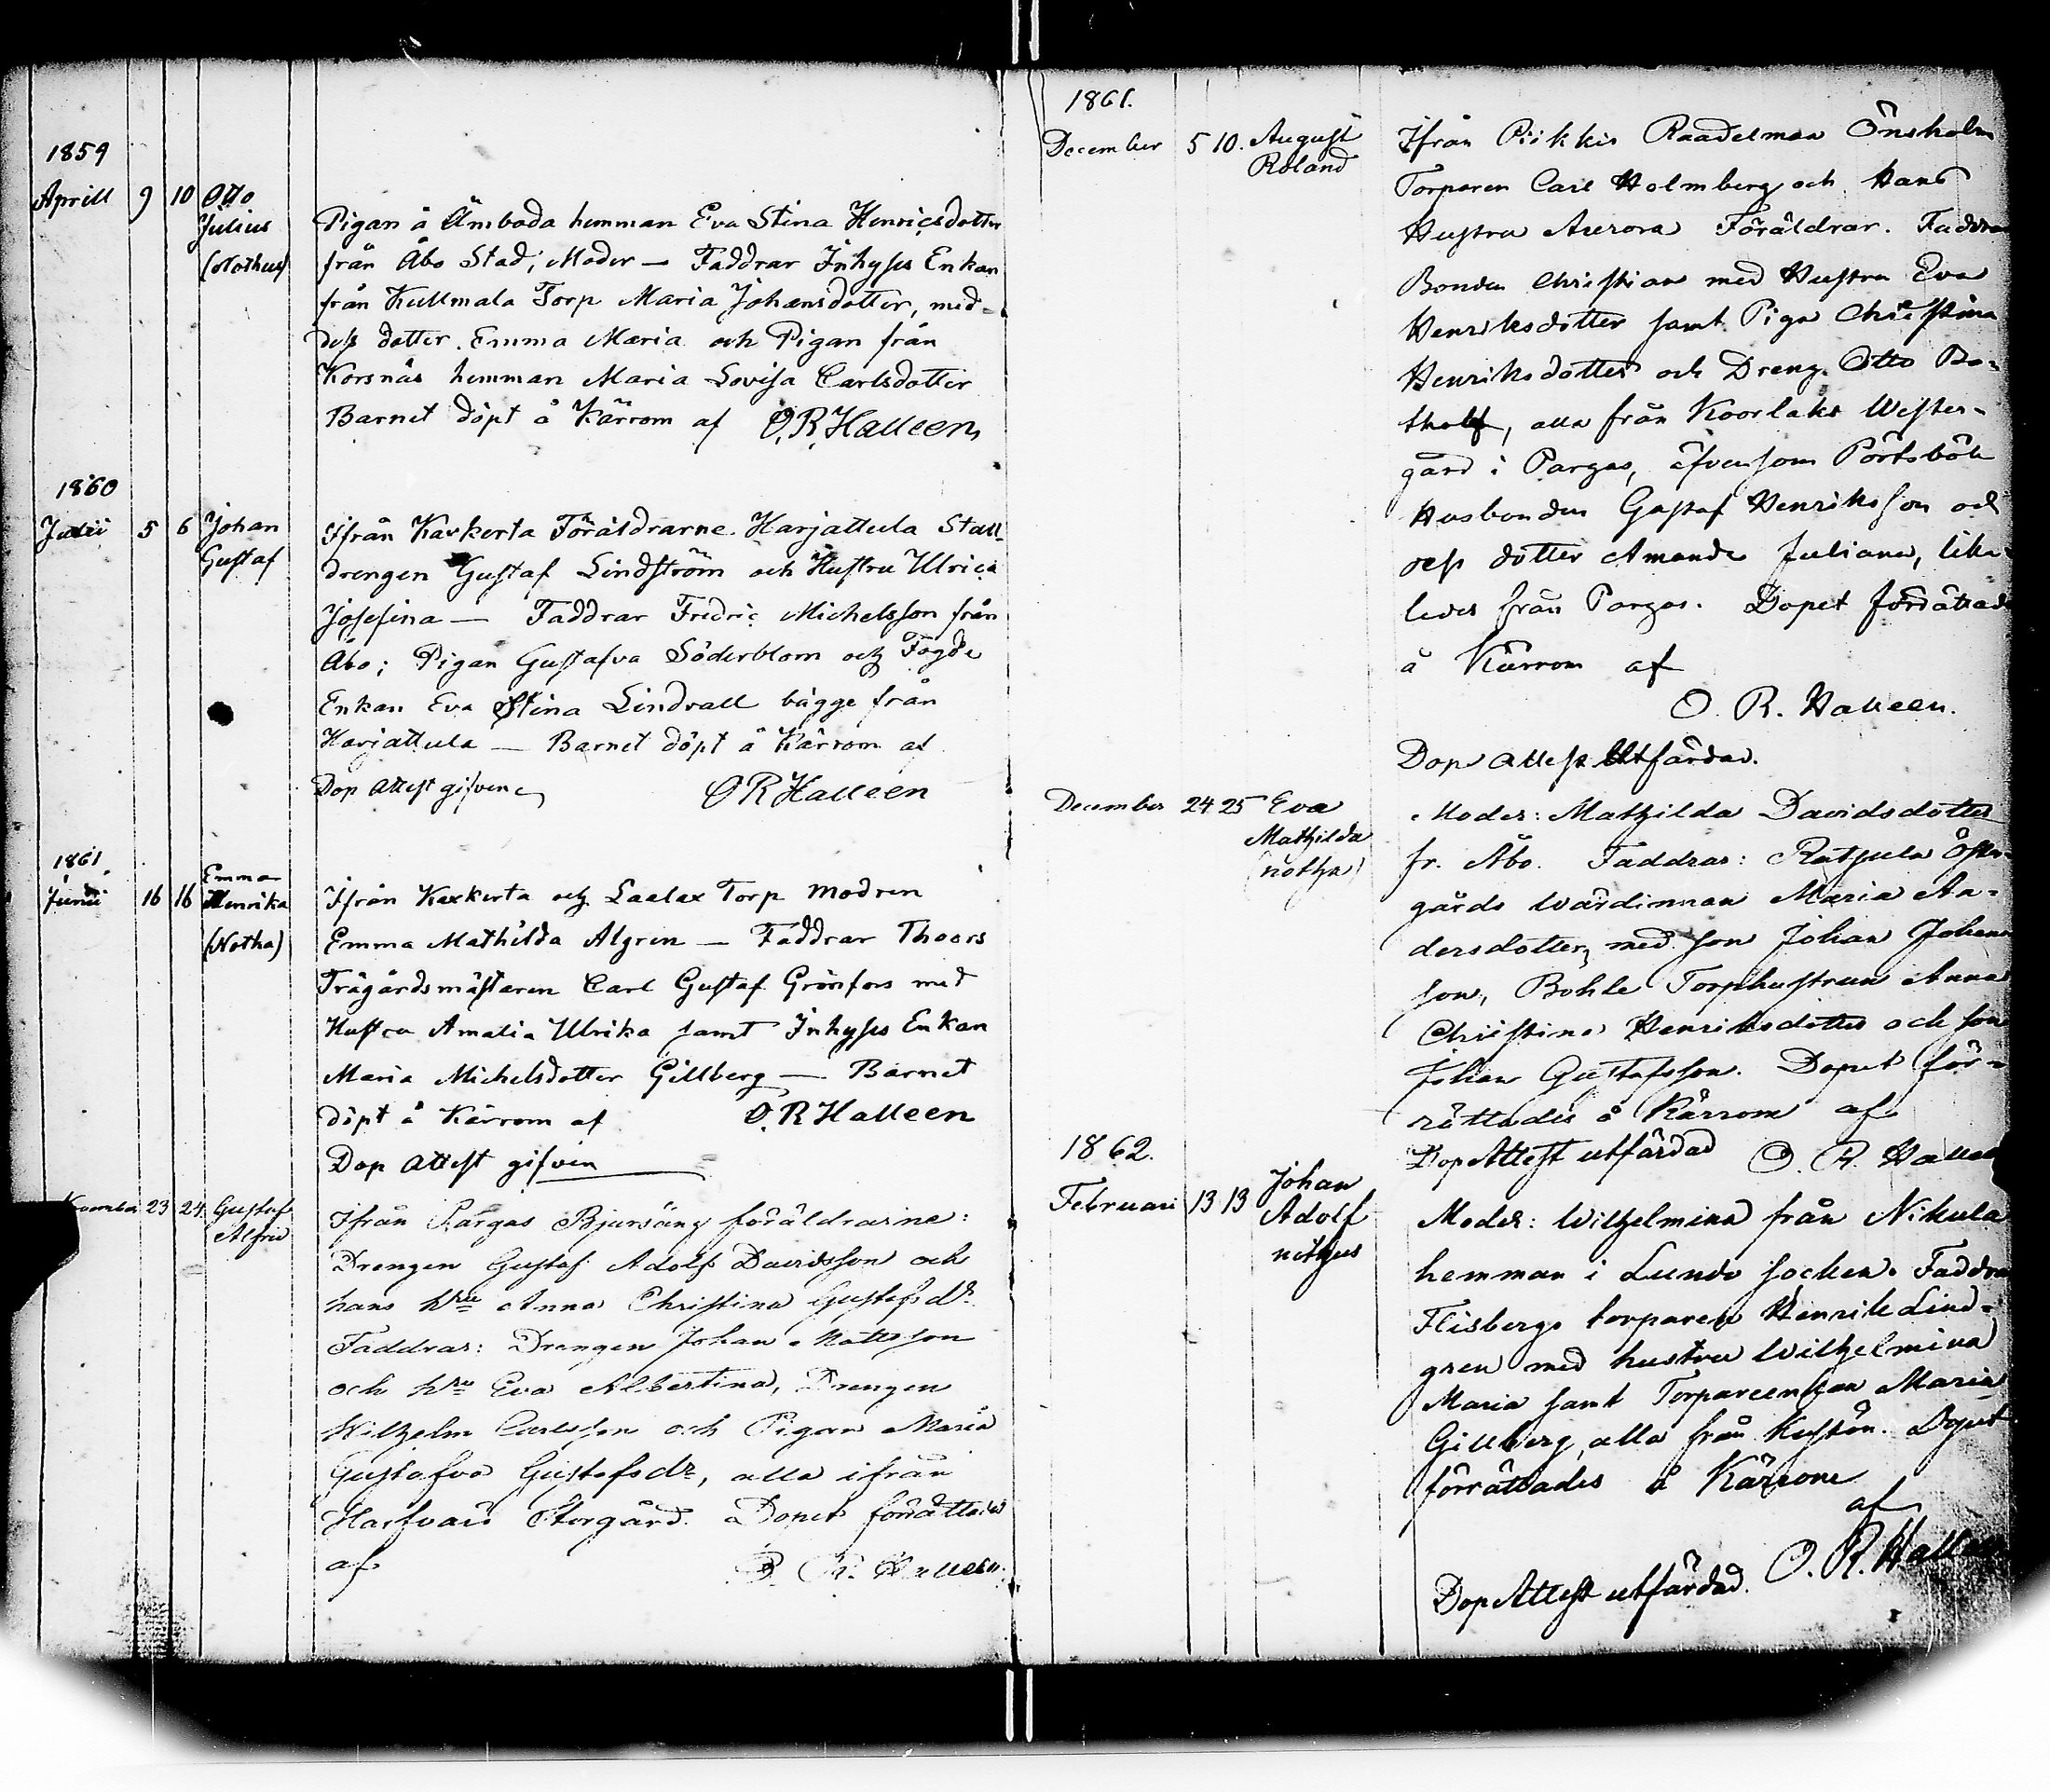 1859
Aprill 9 10 Otto
Julius
(Nothus)
Pigan å Ämboda hemman Eva Stina Henricsdotter
från Åbo Stad, Moder — Faddrar Inhyses Enkan
från Kullmala Torp Maria Johansdotter, med
dess dotter Emma Maria och Pigan från
Korsnäs hemman Maria Lovisa Carlsdotter
Barnet döpt å Kärrom af O.R. Halleen
1860
5 6 Johan
Gustaf
Ifrån Kaxkerta Föräldrarne Harjattula Stall
drengen Gustaf Lindström och Hustru Ulrica
Josefina — Faddrar Fredric Michelsson från
Åbo; Pigan Gustafva Söderblom och Fogde
Enkan Eva Stina Lindvall bägge från
Harjattula — Barnet döpt å Kärrom af
Dop attest gifven O R Halleen
1861
Junii 16 16 Emma
Henrika
(Notha)
Ifrån Kaxkerta och Laelax Torp modren
Emma Mathilda Algren — Faddrar Thoors
Trägårdsmästaren Carl Gustaf Grönfors med
Hustru Amalia Ulrika samt Inhyses Enkan
Maria Michelsdotter Gillberg — Barnet
döpt å Kärrom af O. R Halleen
Dop attest gifven
23 24 Gustaf
Alfred
Ifrån Pargas Bjursäng föräldrarne:
Drengen Gustaf Adolf Davidsson och
hans hru Anna Christina Gustafsdr
Faddrar: Drengen Johan Mattsson
och hru Eva Albertina, Drengen
Wilhelm Carlsson och Pigan Maria
Gustafva Gustafsdr, alla ifrån
Storgård. Dopet förrättad
af O. R. Halleen
1861.
December 5 10. August
Roland
Ifrån Piikkis Raadelmaa Önsholm
Torparen Carl Holmberg och Hans
Hustru Aurora Föräldrar. Faddrar
Bonden Christian med Hustru Eva
Henriksdotter samt Piga Christina
Henriksdotter och Dreng Otto Bo-
tholf, alla från Koorlaks Wester-
gård i Pargas, äfvensom Pörtsböle
Husbonden Gustaf Henriksson och
dess dotter Amanda Juliana, lika-
ledes från Pargas. Dopet förrättad
å Kärrom af
O. R. Halleen.
Dop attest Utfärdad.
December 24 25 Eva
Mathilda
(notha)
Moder: Mathilda Davidsdotter
fr. Åbo. Faddrar: Ratsula Öster-
gårds wärdinnan Maria An-
dersdotter, med son Johan Johans
son, Bohle Torphustrun Anna
Christina Henriksdotter och son
Johan Gustafsson. Dopet för-
rättades å Kärrom af
Dop Attest utfärdad O. R. Halleen
1862.
Februari 13 13 Johan
Adolf
nothus
Moder: Wilhelmina från Nikula
hemman i Lundo socken. Faddrar
Flisbergs torparen Henrik Lind-
gren med hustru Wilhelmina
Maria samt Torpareenkan Maria
Gillberg, alla från Kustön. Dopet
förrättades å Kärrom
af
Dop Attest utfärdad. O. R. Halleen